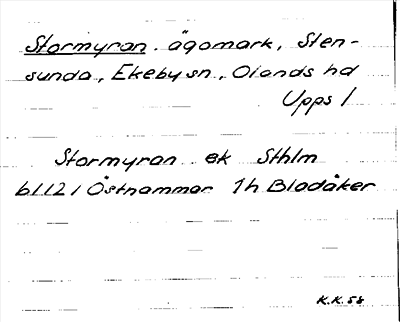 Stormyran. ägomark, Sten-
sunda, Ekeby sn, Olands hd
Upps l
Stormyran ek Sthlm
6112 1 Östhammar 1h Bladåker
K.K. 58